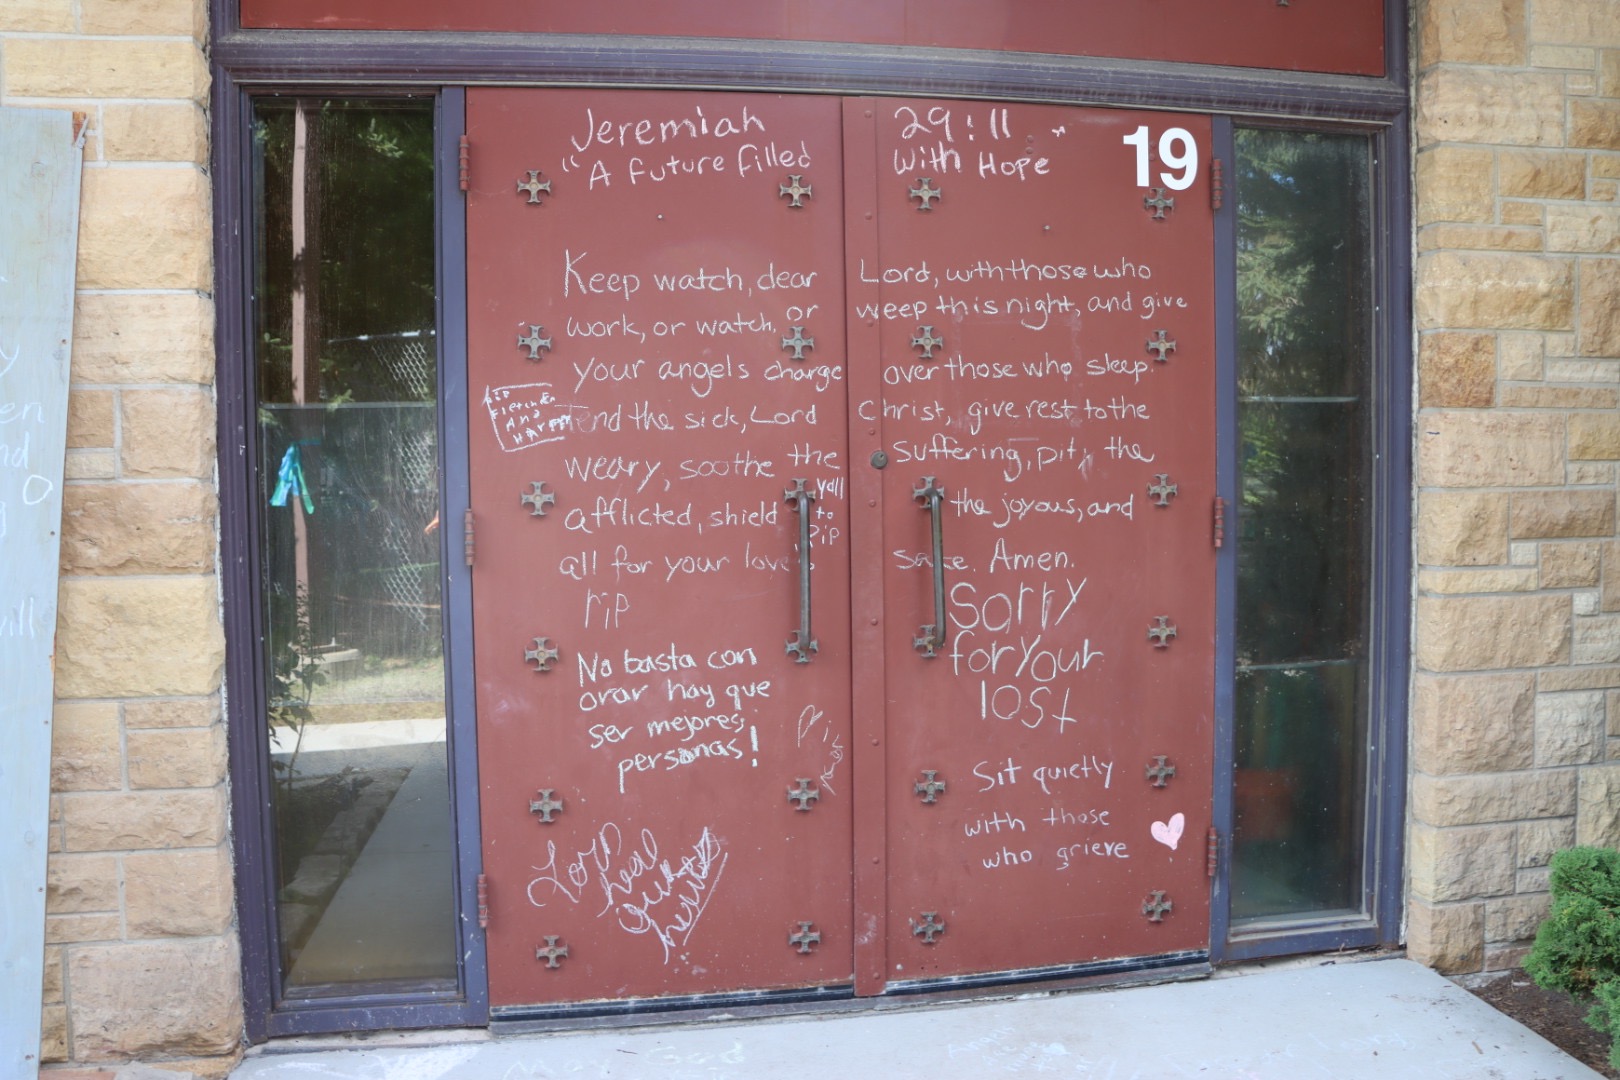 Jeremiah 29:11
19
"A future filled with Hope"
Keep watch, dear Lord, with those who
work, or watch, or weep this night, and give
your angels charge over those who sleep.
Tend the sick, Lord Christ, give rest to the
weary, soothe the suffering, pity the
afflicted, shield the joyous, and
all for your love's sake. Amen.
RIP
Fletcher
And
Harper
yall
to
Rip
rip
Sorry
for your
lost
No basta con
orar hay que
ser mejores
personas!
Sit quietly
with those
who grieve
Lord
heal
our
hearts
en
nd
O
will
God